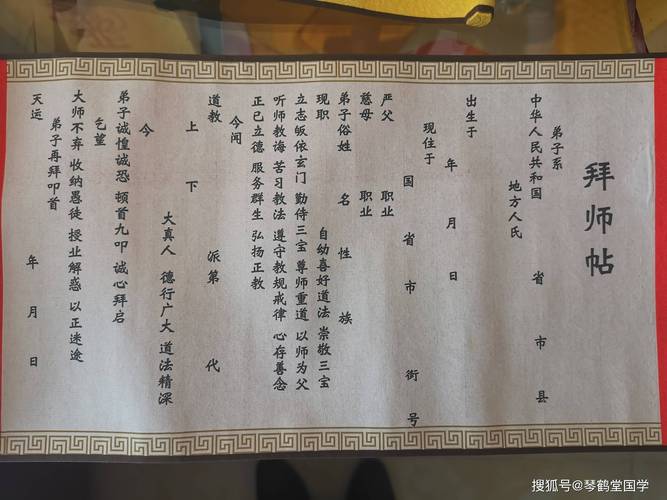 拜师帖
弟子系
中华人民共和国 省 市 县
地方人氏
出生于
年 月 日
现住于
国 省 市 街 号
严父 职业
慈母 职业
弟子俗姓 名 性 族
现职 自幼喜好道法 崇敬三宝
立志皈依玄门 勤侍三宝 尊师重道 以师为父
听师教诲 苦习教法 遵守教规戒律 心存善念
正己立德 服务群生 弘扬正教
今闻
道教 派第 代
上 下
大真人 德行广大 道法精深
今
弟子诚惶诚恐 顿首九叩 诚心拜启
乞望
大师不弃 收纳愚徒 授业解惑 以正迷途
弟子再拜叩首
天运 年 月 日
搜狐号@琴鹤堂国学